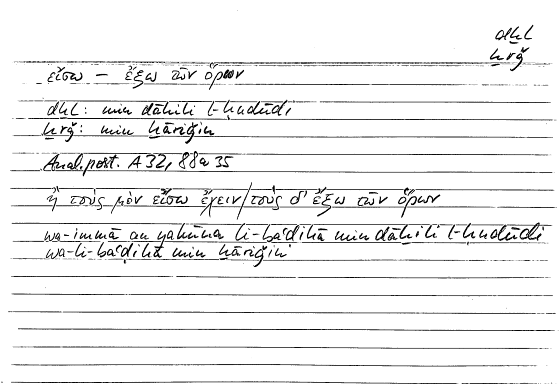 dḫl
ḫrǧ
εἴσω — ἔξω τῶν ὅρων
dḫl: min dāḫili l-ḥudūdi
ḫrǧ: min ḫāriǧin
Anal. post. A 32, 88a 35
ἢ τοὺς μὲν εἴσω ἔχειν/τοὺς δ' ἔξω τῶν ὅρων
wa-immā an yakūna li-baʿḍihā min dāḫili l-ḥudūdi
wa-li-baʿḍihā min ḫāriǧin